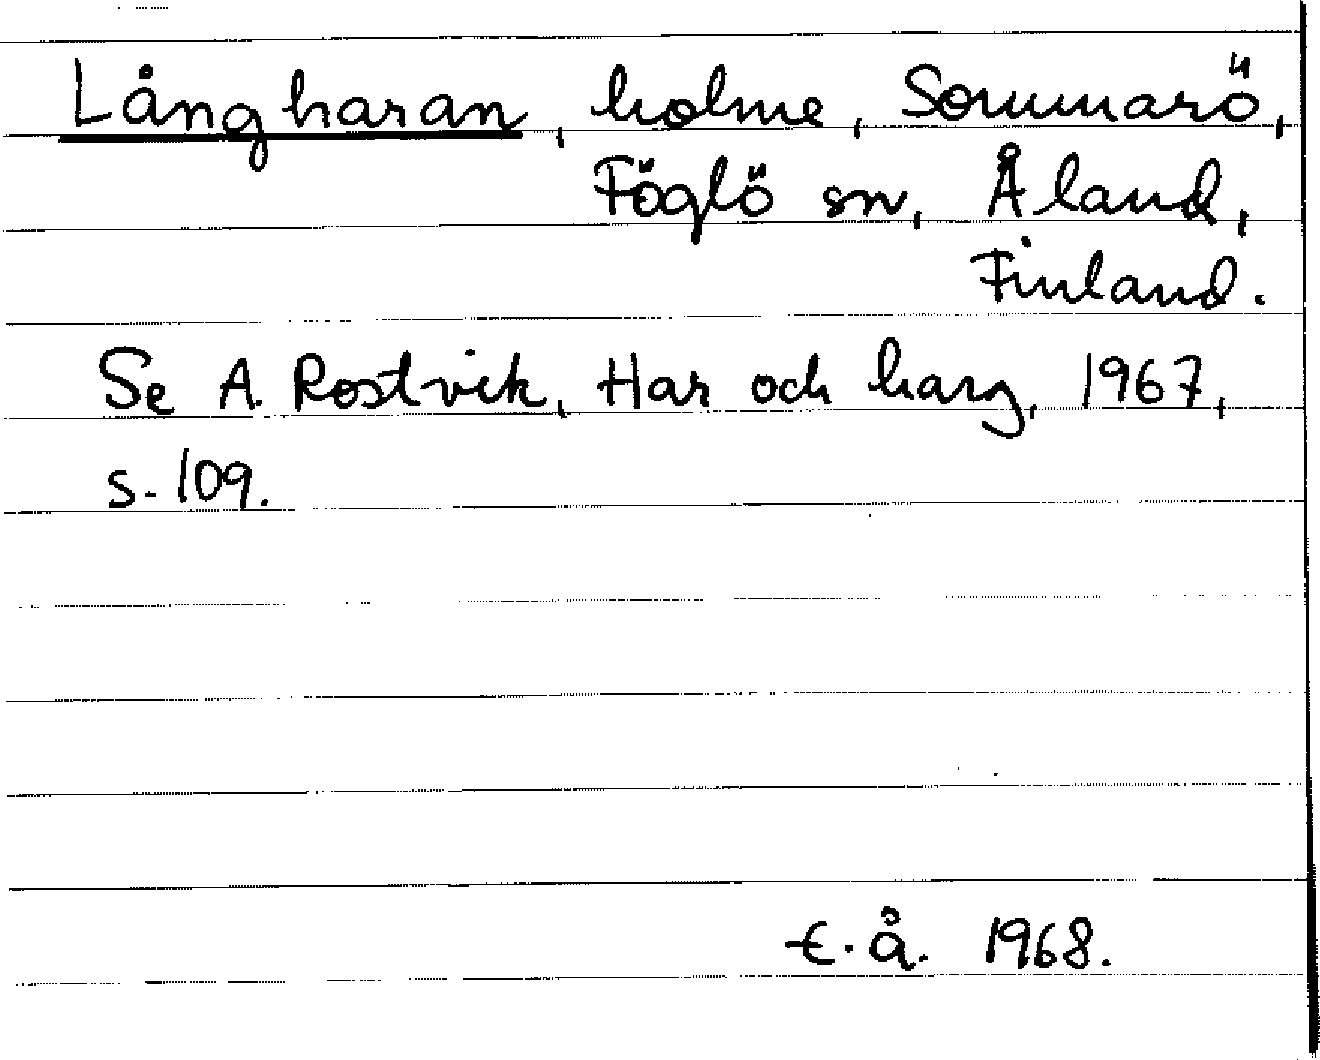 Långharan, holme, Sommarö,
Föglö sn, Åland,
Finland.
Se A. Rostvik, Har och harg, 1967,
s. 109.
E. å. 1968.